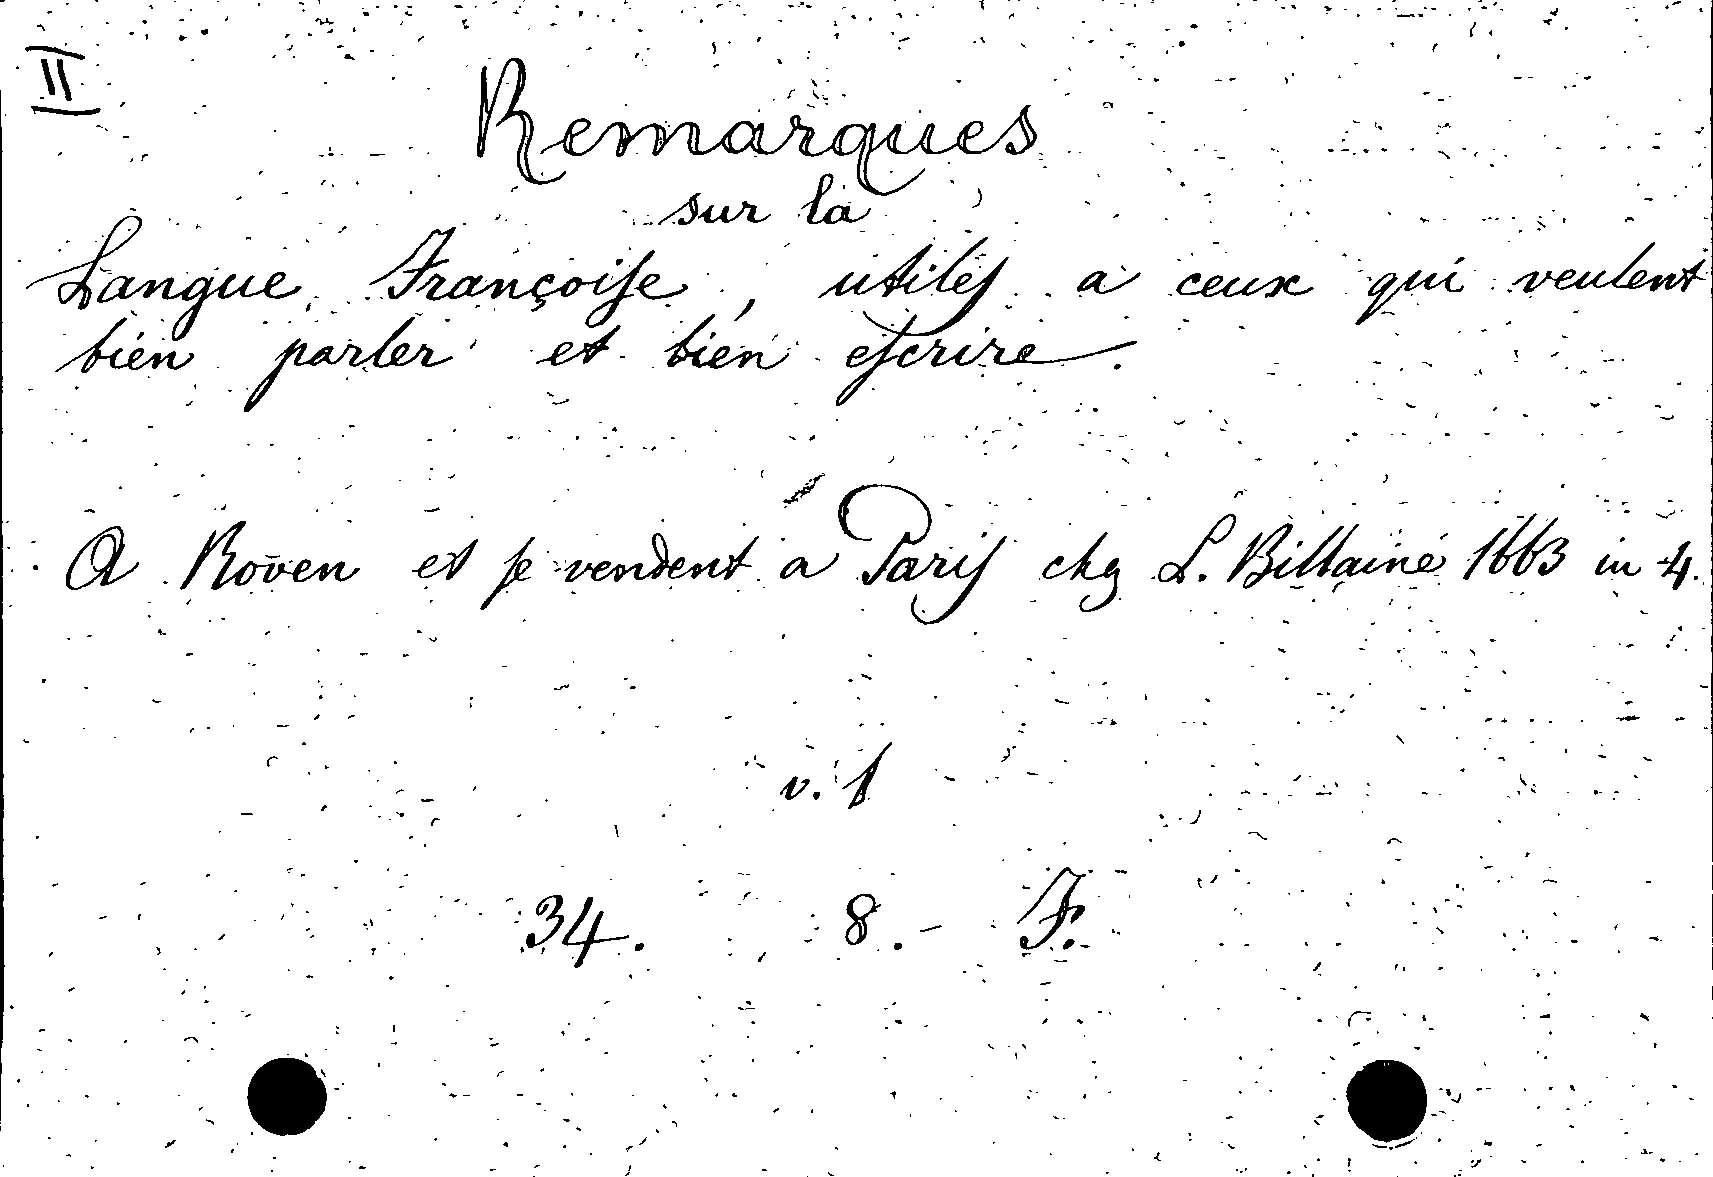 II
Remarques
sur la
Langue Françoiſe, utileſ a ceux qui veulent
bien parler et bien eſcrire.
A Roūen et ſe vendent a Pariſ chz L. Billaine 1663 in 4.
v. f
34. 8.- F.